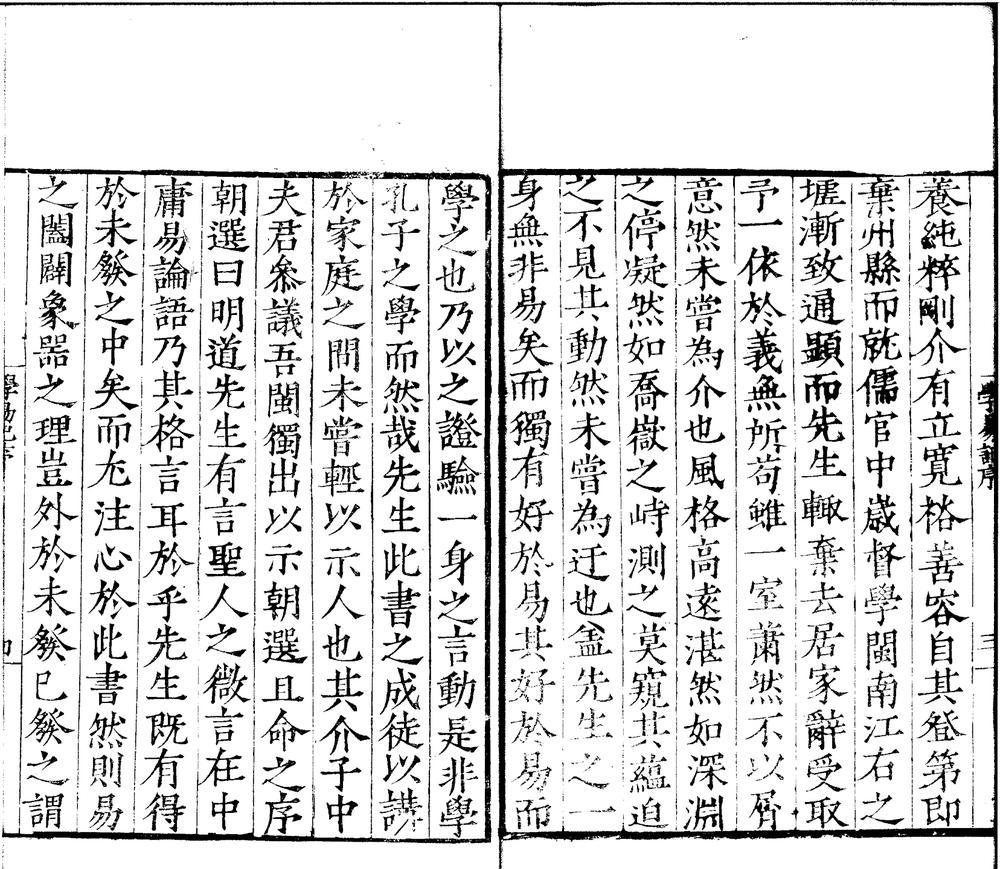 養純粹剛介有立寬裕善容自其登第即
棄州縣而就儒官中歲督學閩南江右之
墟漸致通顯而先生輙棄去居家辭受取
予一依於義無所苟雖一室蕭然不以屑
意然未嘗為介也風格高遠湛然如深淵
之停凝然如喬嶽之峙測之莫窺其蘊迫
之不見其動然未嘗為迂也盖先生之一
身無非易矣而獨有好於易其好於易而
學之也乃以之證驗一身之言動是非學
孔子之學而然哉先生此書之成徒以講
於家庭之間未嘗輕以示人也其介子中
夫君叅議吾閩獨出以示朝選且命之序
朝選曰明道先生有言聖人之微言在中
庸易論語乃其格言耳於乎先生既有得
於未發之中矣而尤注心於此書然則易
之闔闢象器之理豈外於未發已發之謂
學易記序
三
學易記序
四